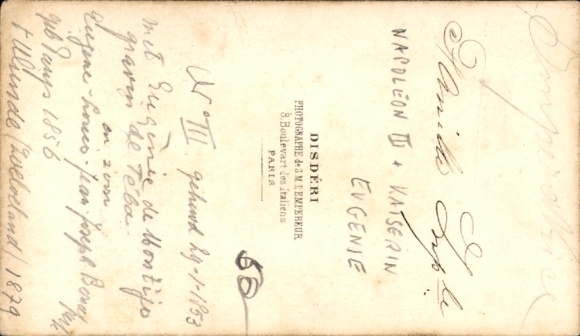 Famille Imp.le
NAPOLÉON III + KAISERIN
EUGENIE
DISDÉRI
PHOTOGRAPHE de S.M. L'EMPEREUR
8. Boulevart des Italiens
PARIS
58
N III gehuwd 29-1-1853
met Eugénie de Montijo
gravin de Teba
en zoon
Eugène-Louis-Jean Joseph Bonap
geb Parys 1856
+ Ulundi (Zoeloeland) 1879